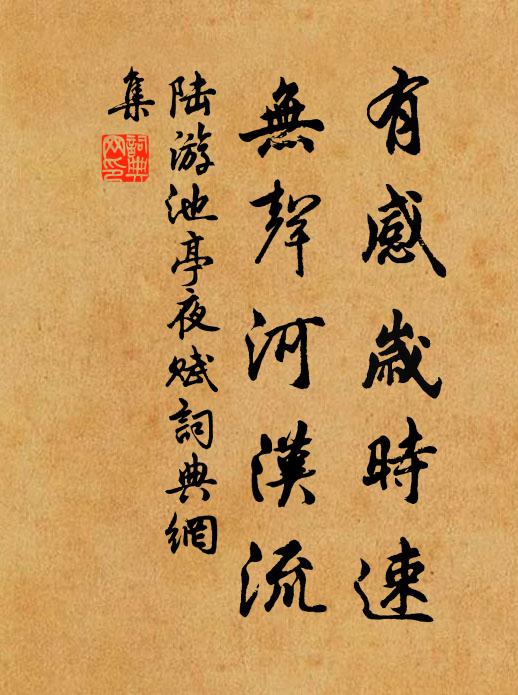 有感歲時速
無聲河漢流
陆游池亭夜賦詞典網
集
詞典
网印